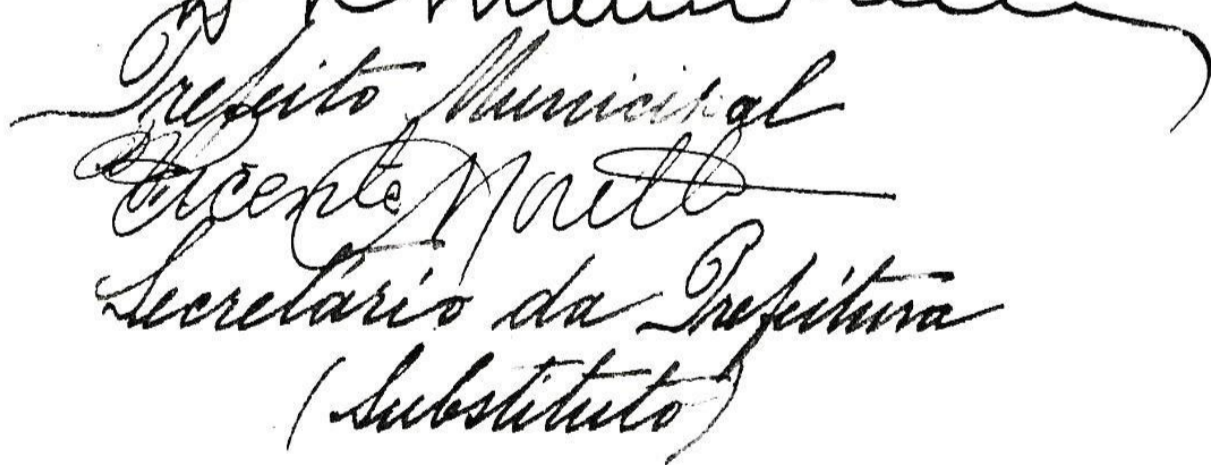 Prefeito Municipal
Vicente Morett
Secretário da Prefeitura
(Substituto)